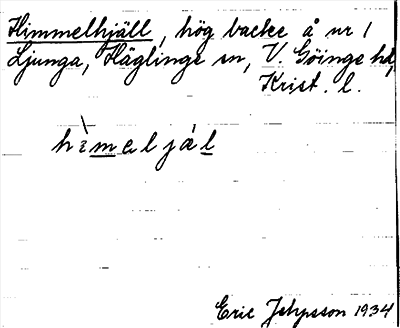 Himmelhjäll, hög backe å nr 1
Ljunga, Häglinge sn, V. Göinge hd,
Krist. l.
hìmeljál
Eric Jepsson 1934